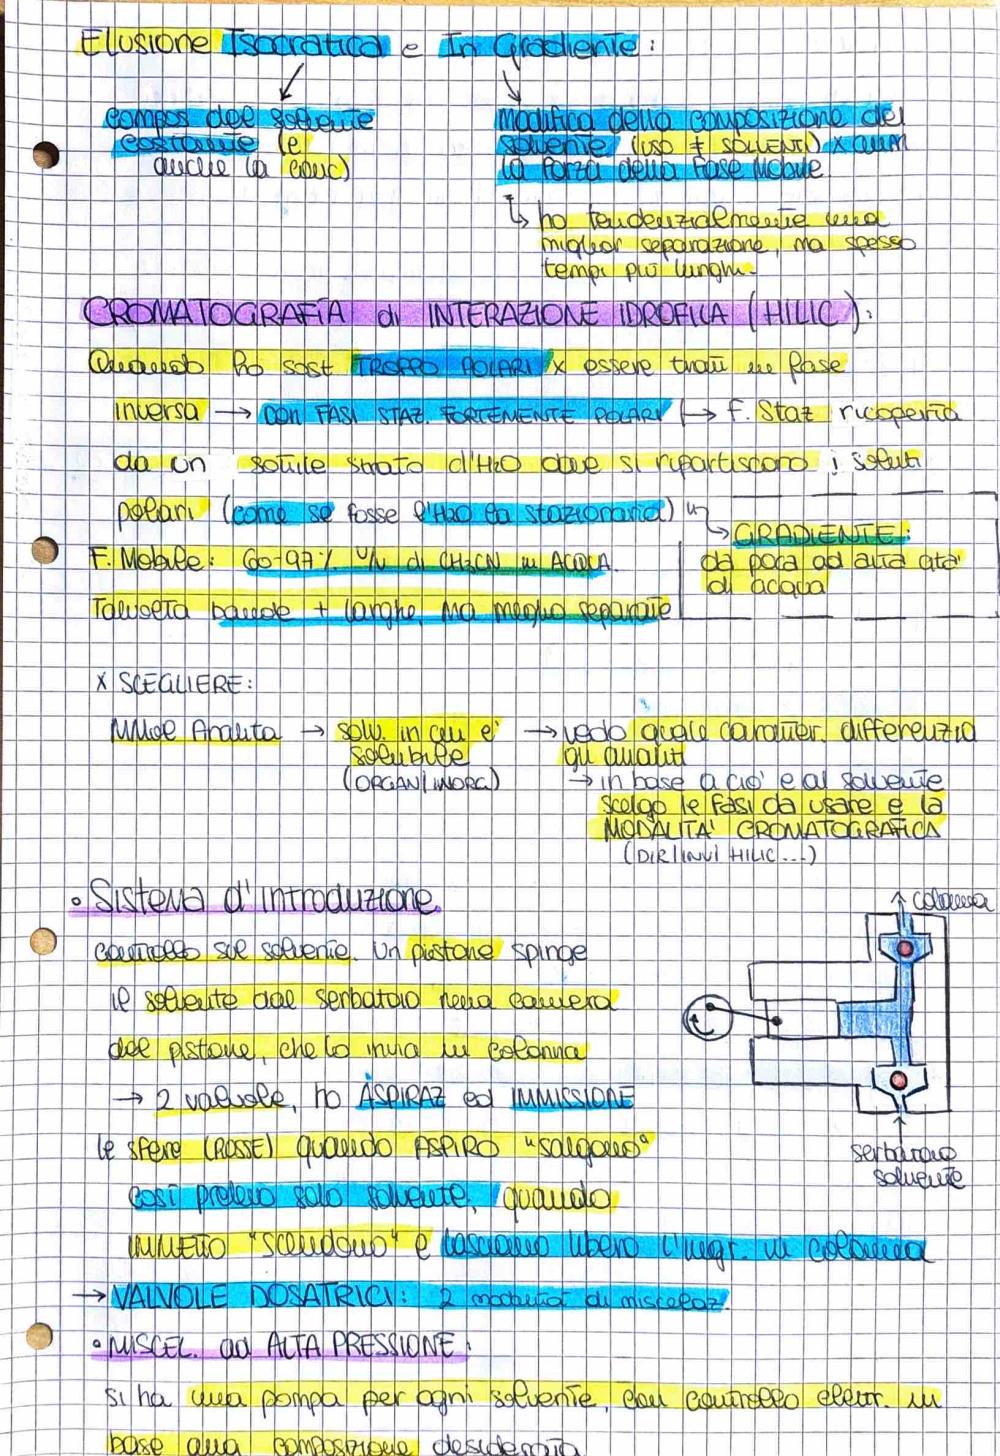 Elusione Isocratica e In Gradiente:
compos del solvente
costante (e
anche la conc)
modifica della composizione del
solvente (uso ≠ SOLVENTI) x aum
la Forza della Fase Mobile.
↳ ho tendenzialmente una
miglior separazione, ma spesso
tempi più lunghi.
CROMATOGRAFIA di INTERAZIONE IDROFILA (HILIC):
Quando ho sost TROPPO POLARI x essere tratt in fase
inversa → con FASI STAZ. FORTEMENTE POLARI → F. Staz ricoperta
da un sottile strato d'H2O dove si ripartiscono i soluti
polari (come se fosse l'H2O la stazionaria)
↳ GRADIENTE:
da poca ad alta qta'
di acqua
F. Mobile: 60-97% v/v di CH3CN in ACQUA.
Talvolta bande + larghe, ma meglio separate
x SCEGLIERE:
MMol Analita → solv. in cui e'
solubile
(ORGAN/INORG)
→ vedo quale caratter. differenzia
gli analiti
→ in base a cio' e al solvente
scelgo le fasi da usare e la
MODALITA' CROMATOGRAFICA
(DIR/INV/HILIC...)
• Sistema d'introduzione
controllo sul solvente. Un pistone spinge
il solvente dal serbatoio nella camera
del pistone, che lo invia in colonna
→ 2 valvole, ho ASPIRAZ ed IMMISSIONE
le sfere (ROSSE) quando ASPIRO "salgono"
così prelevo solo solvente, quando
IMMETTO "scendono" e lasciano libero l'ingr. in colonna
colonna
serbatoio
solvente
→ VALVOLE DOSATRICI: 2 modalità di miscelaz.
• MISCEL. ad ALTA PRESSIONE:
si ha una pompa per ogni solvente, con controllo elettr. in
base alla composizione desiderata